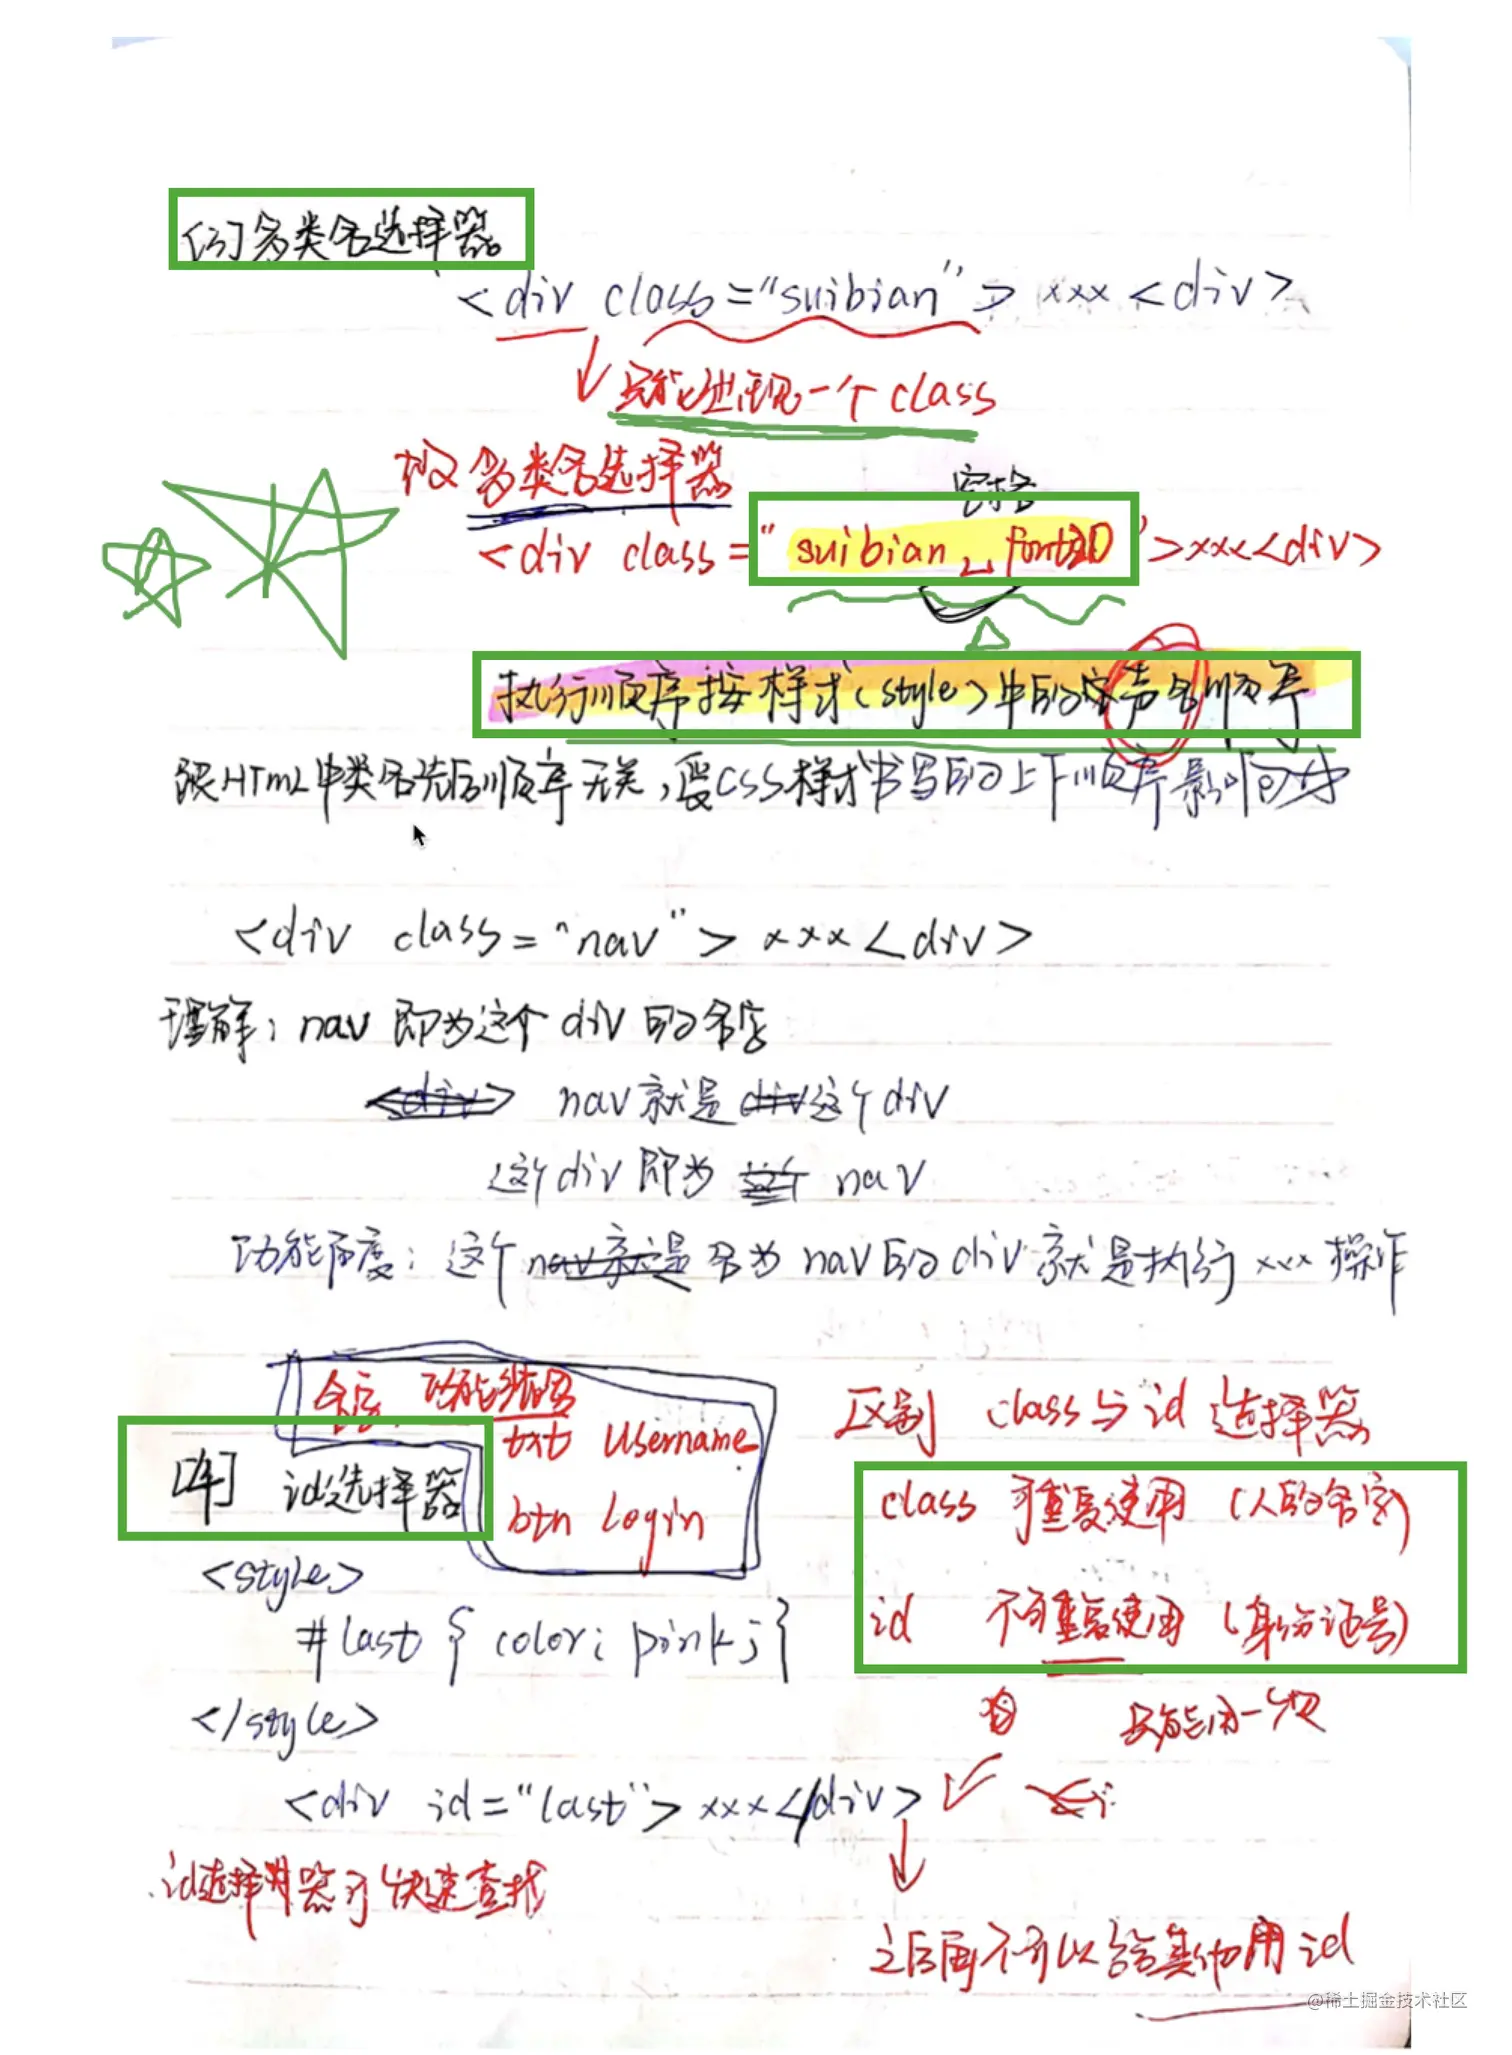 [3] 多类名选择器
<div class="suibian"> xxx <div>
只能出现一个class
多类名选择器
空格
<div class="suibian ␣ font20">xxx<div>
执行顺序按样式(style)中的声名顺序
跟HTmL中类名先后顺序无关,受CSS样式书写的上下顺序影响
<div class="nav"> xxx <div>
理解: nav 即为这个 div 的名字
<div> nav就是div这个div
这个div即为 这个 nav
功能角度: 这个nav就是名为nav的div就是执行xxx操作
命名 功能
txt Username
btn Login
[4] id选择器
<style>
#last { color: pink; }
</style>
<div id="last"> xxx</div>
id选择器可快速查找
区别 class与id 选择器
class 可重复使用 (人的名字)
id 不可重复使用 (身份证号)
只能用一次
之后再不可以给其他用id
@稀土掘金技术社区